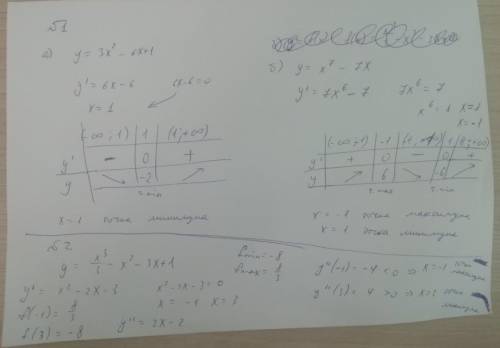 №1
а) y = 3x² - 6x+1
y' = 6x-6 6x-6=0
x = 1
(-∞; 1) | 1 | (1; +∞)
y' | - | 0 | +
y | ↘ | -2 | ↗
т. min
x = 1 точка минимума
б) y = x⁷ - 7x
y' = 7x⁶ - 7 7x⁶ = 7
x⁶ = 1 x=1
x=-1
y' | + | 0 | - | 0 | +
y | ↗ | 6 | ↘ | -6 | ↗
т. max т. min
x = -1 точка максимума
x = 1 точка минимума
№2
y = x³/3 - x² - 3x+1
y' = x² - 2x - 3 x² - 2x - 3=0
x = -1 x = 3
f(3) = -8 y'' = 2x - 2
fmin = -8
y''(-1) = -4 < 0 ⇒ x=-1 точка максимума
y''(3) = 4 > 0 ⇒ x=3 точка